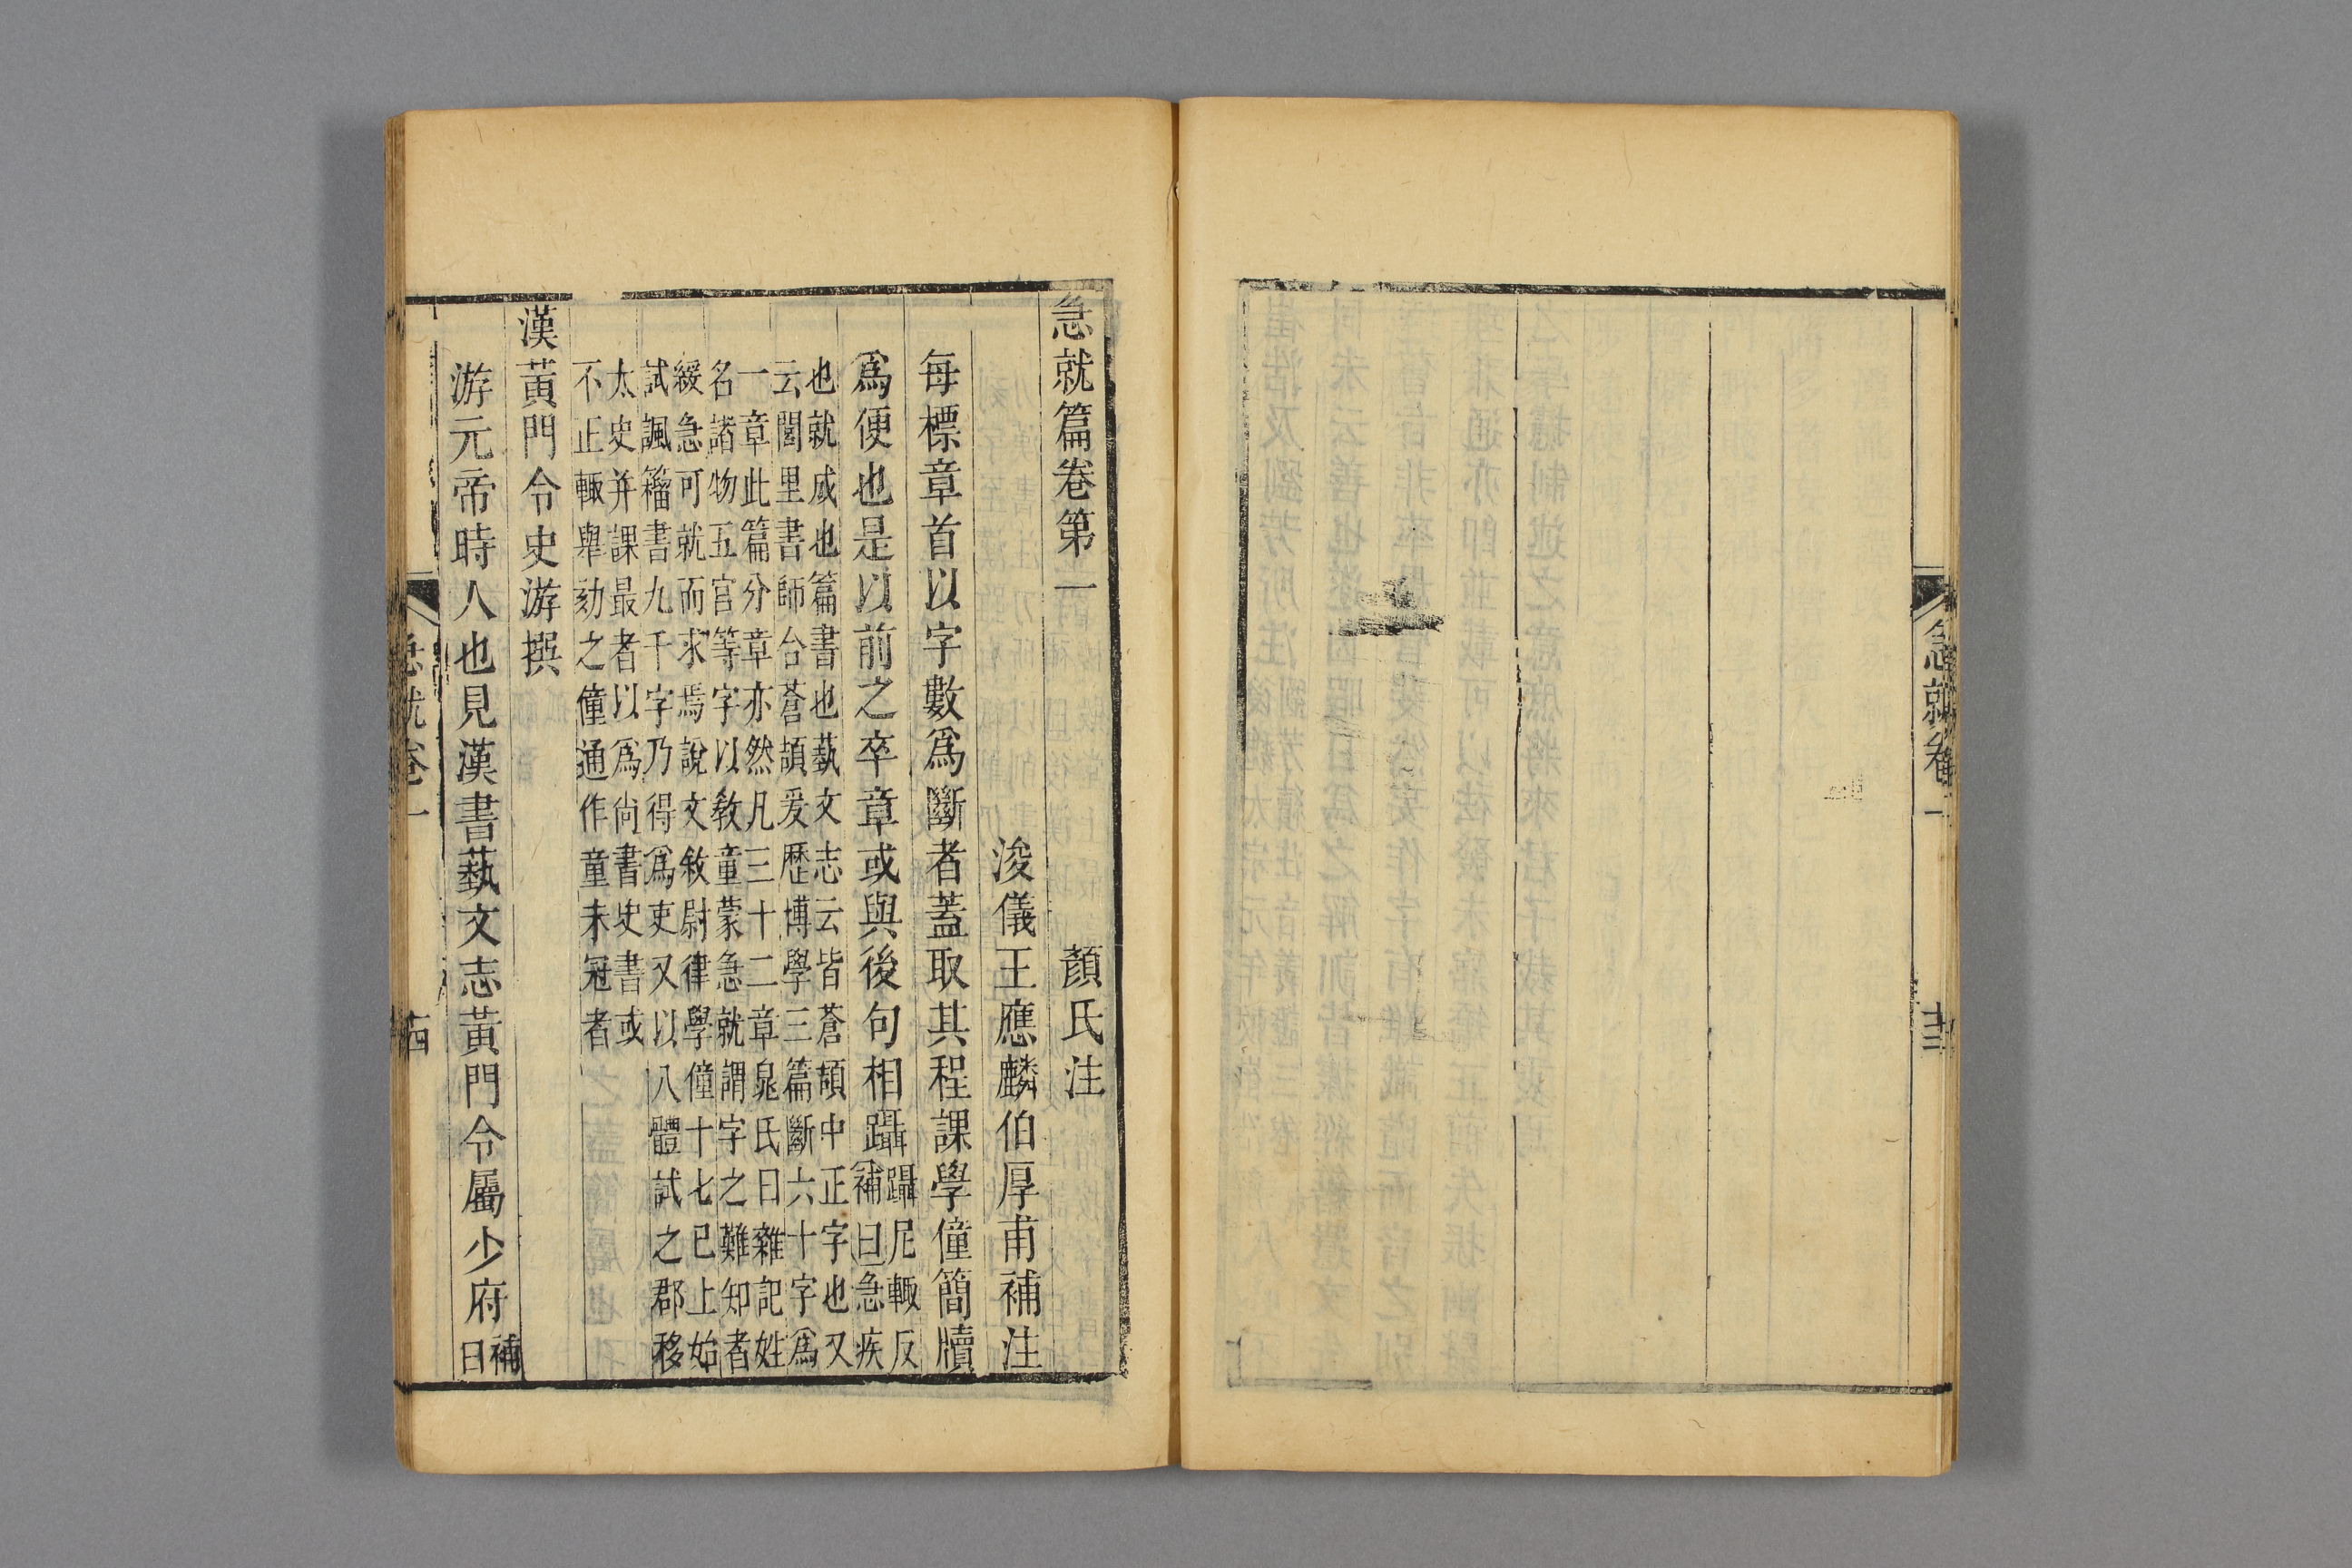 急就卷一
十三
急就篇卷第一
顏氏注
浚儀王應麟伯厚甫補注
每標章首以字數爲斷者蓋取其程課學僮簡牘
爲便也是以前之卒章或與後句相躡
躡尼輒反
補曰急疾
也就成也篇書也藝文志云皆蒼頡中正字也又
云閭里書師合蒼頡爰歷博學三篇斷六十字爲
一章此篇分章亦然凡三十二章晁氏曰雜記姓
名諸物五官等字以教童蒙急就謂字之難知者
緩急可就而求焉說文敘尉律學僮十七已上始
試諷籀書九千字乃得爲吏又以八體試之郡移
太史并課最者以爲尚書史書或
不正輒舉劾之僮通作童未冠者
漢黃門令史游撰
游元帝時人也見漢書藝文志黃門令屬少府
補
曰
急就卷一
十四